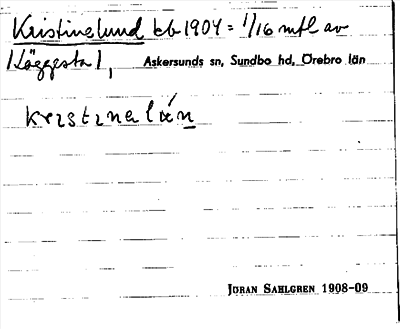 Kristinelund kb 1904 = 1/16 mtl av
Kåggesta 1, Askersunds sn, Sundbo hd, Örebro län
krɪstɪnəlǽn
JÖRAN SAHLGREN 1908-09